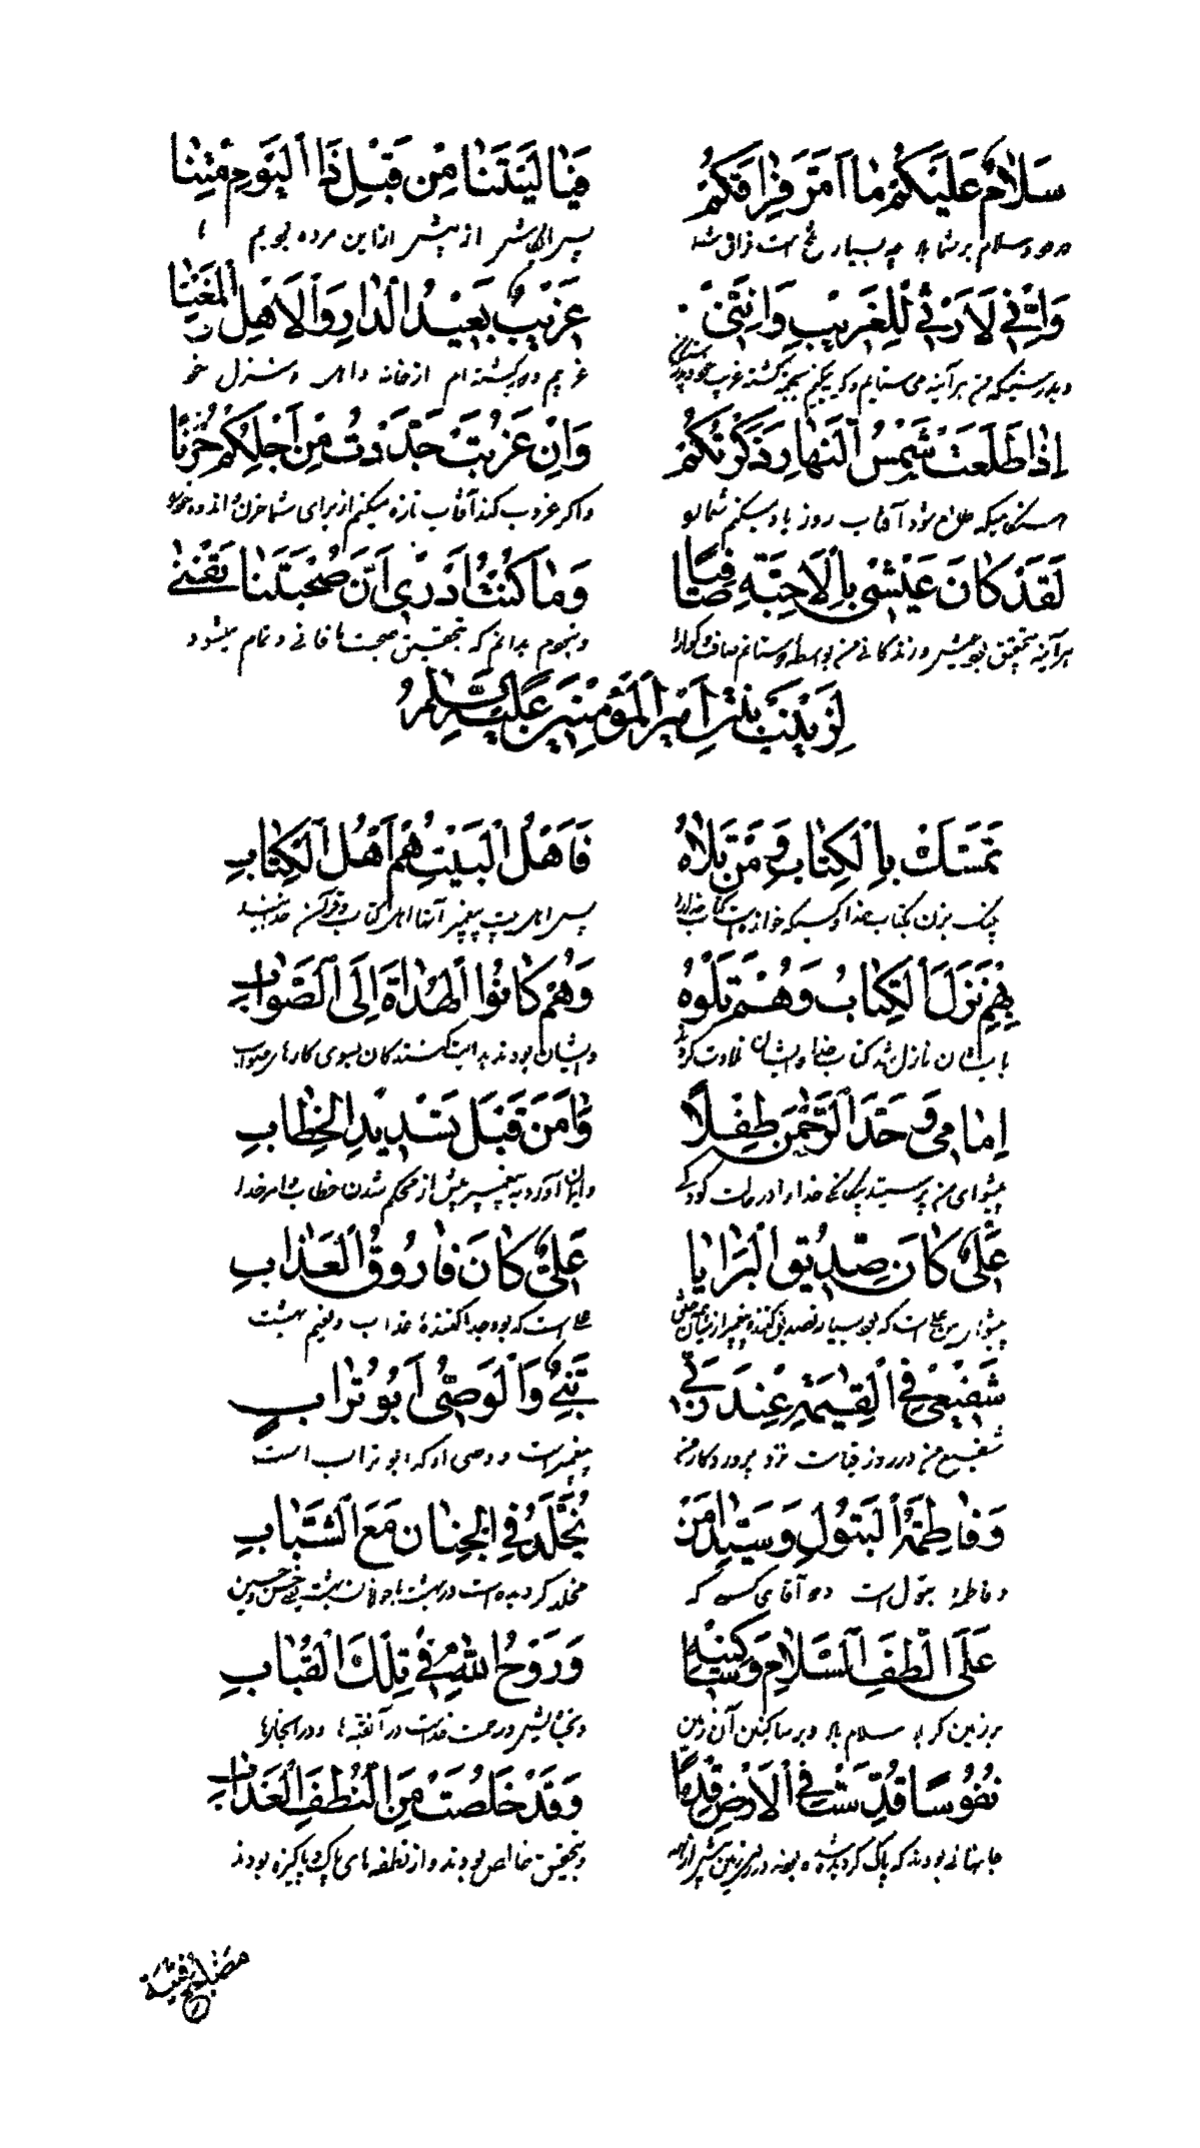 سَلامٌ عَلَيْكُمْ ما اَمَرَّ فِراقَكُمْ فَيا لَيْتَنا مِنْ قَبْلِ ذَا الْيَوْمِ مُتْنا
درود و سلام بر شما باد چه بسیار تلخ است فراق شما پس ای کاش از پیش از این مرده بودیم
وَاِنّي لَاَرْثي لِلْغَريبِ وَاِنَّني غَريبٌ بَعيدُ الدّارِ وَالْاَهْلِ وَالْمَغْنا
غریبم دور گشته ام از خانه و اهل و منزل خود
اِذا طَلَعَتْ شَمْسُ النَّهارِ ذَكَرْتُكُمْ وَاِنْ غَرُبَتْ جَدَّدْتُ مِنْ اَجْلِكُمْ حُزْنًا
هنگامیکه طلوع شود آفتاب روز یاد میکنم شما را و اگر غروب کند آفتاب تازه میکنم از برای شما حزن و اندوه خود
لَقَدْ كانَ عَيْشي بِالْاَحِبَّةِ صافِيًا وَما كُنْتُ اَدْري اَنَّ صُحْبَتَنا تَفْنى
هر آینه بتحقیق بود عیش و زندگانی من بواسطه دوستانم صاف و گوارا و نبودم بدانم که بتحقیق صحبت ما فانی و تمام میشود
لِزَيْنَبَ بِنْتِ اَميرِ الْمُؤْمِنينَ عَلَيْهِ السَّلامُ
تَمَسَّكْ بِالْكِتابِ وَمَنْ تَلاهُ فَاَهْلُ الْبَيْتِ هُمْ اَهْلُ الْكِتابِ
چنگ بزن بکتاب خدا و کسیکه خوانده است کتاب خدا را پس اهل بیت پیغمبر آنها اهل کتاب
بِهِمْ نَزَلَ الْكِتابُ وَهُمْ تَلَوْهُ وَهُمْ كانُوا الْهُداةَ اِلَى الصَّوابِ
بایشان نازل شد کتاب خدا و ایشان تلاوت کردند و ایشان بودند هدایت کنندگان بسوی کارهای صواب
اِمامي وَحَّدَ الرَّحْمنَ طِفْلًا وَآمَنَ قَبْلَ تَشْديدِ الْخِطابِ
پیشوای من پرستید بیگانگی خدا را در حالت کودکی و ایمان آورد به پیغمبر پیش از محکم شدن خطاب و امر خدا
عَلِيٌّ كانَ صِدّيقَ الْبَرايا عَلِيٌّ كانَ فارُوقَ الْعَذابِ
علی است که بود جدا کنندهٔ عذاب و نعیم بهشت
شَفيعي فِي الْقِيمَةِ عِنْدَ رَبّي نَبِيّي وَالْوَصِيُّ اَبُو تُرابٍ
شفیع من در روز قیامت نزد پروردگار من پیغمبر است و وصی او که ابو تراب است
وَفاطِمَةُ الْبَتُولِ وَسَيِّدا مَنْ يُخَلَّدُ فِي الْجِنانِ مَعَ الشَّبابِ
و فاطمهٔ بتول است و دو آقای کسی که مخلد گردیده است در بهشت با جوانان بهشت یعنی حسن و حسین
عَلَى الطَّفِّ السَّلامُ وَساكِنيهِ وَرَوْحُ اللهِ في تِلْكَ الْقُبابِ
بر زمین کربلا سلام باد و بر ساکنین آن زمین و بخشایش و رحمت خدا است در آن قبه ها و در انجاها
نُفُوسًا قُدِّسَتْ فِي الْاَرْضِ قِدْمًا وَقَدْ خَلُصَتْ مِنَ النُّطَفِ الْعَذابِ
جانهائی بودند که پاک کرده شده بودند در زمین پیش از همه و بتحقیق خالص بودند و از نطفه های پاک و پاکیزه بودند